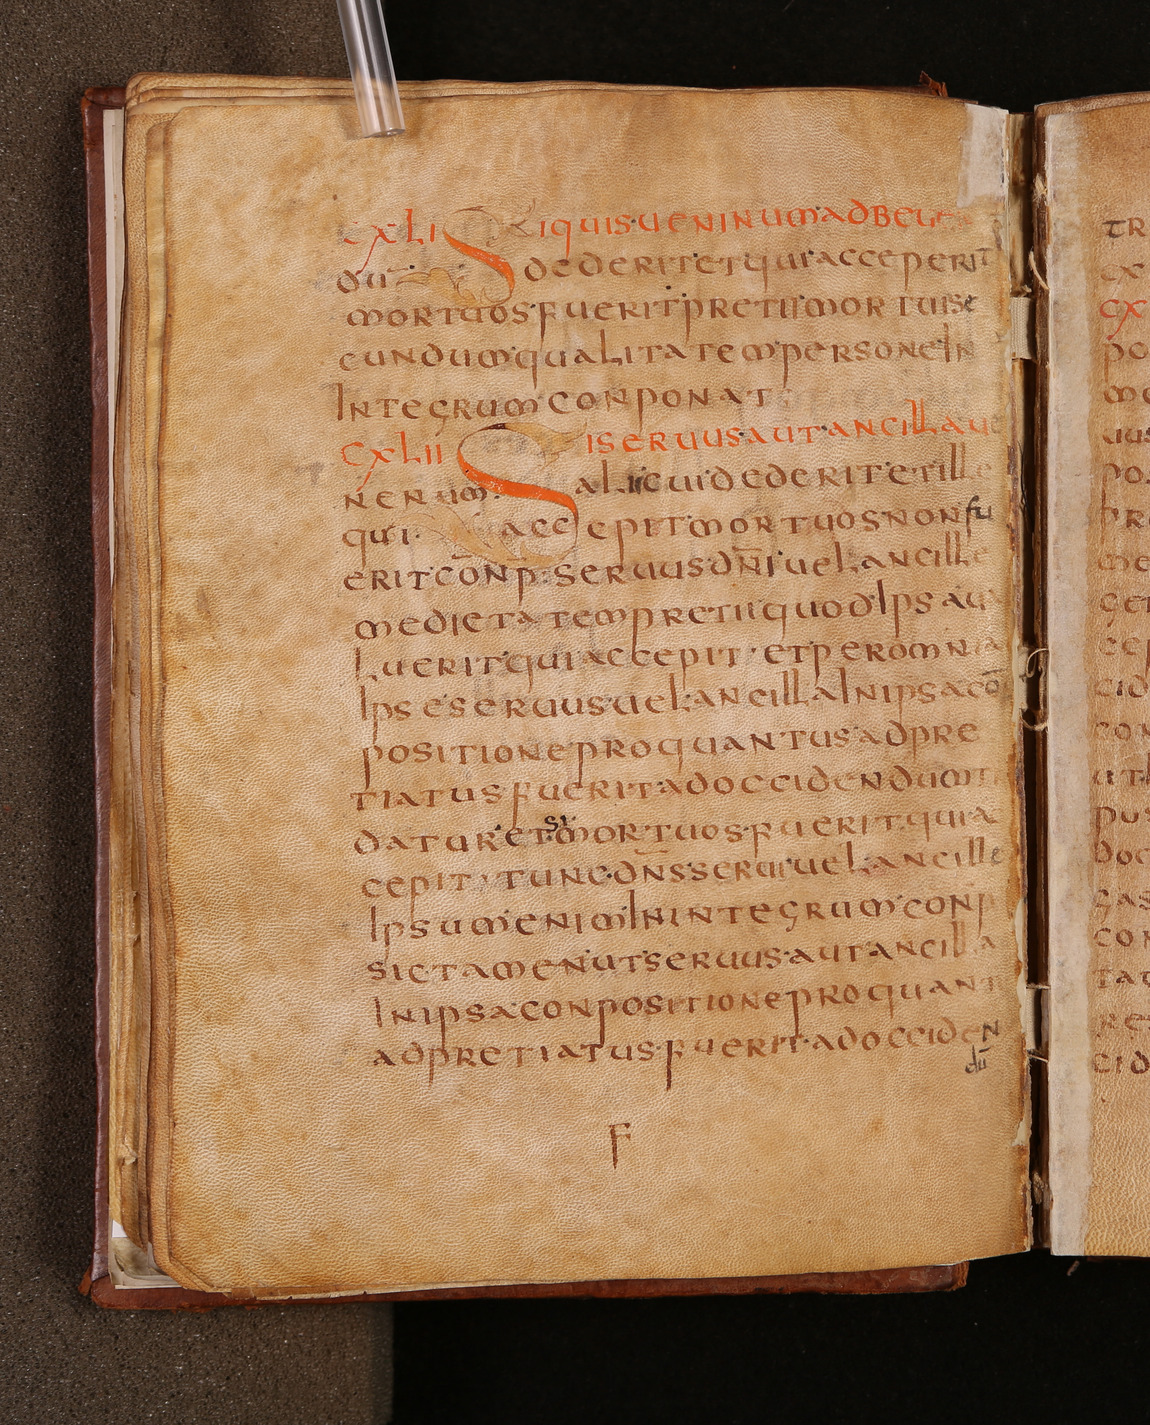 CXLI SIQUIS·UENINUM·ADBEUEN
dū DEDERIT·ET·QUI·ACCEPERIT
MORTUOS·FUERIT·PRETII·MORTUI·SE
CUNDUM·QUALITATEM·PERSONE·IN
INTEGRUM·CONPONAT:
CXLII SISERUUS·AUT·ANCILLA·UE
NENUM· ALICUI·DEDERIT·ET·ILLE
QUI· ACCEPIT·MORTUOS·NON FU
ERIT·CONP·SERUUS·DN̄I·UEL·ANCILLE
MEDIETATEM·PRETII·QUOD·IPSA·UA
LUERIT·QUI·ACCEPIT·ET·PER·OMNIA
IPSE·SERUUS·UEL·ANCILLA·IN·IPSA·CŌ
POSITIONE·PRO·QUANTUS·ADPRE
TIATUS·FUERIT·AD·OCCIDENDUM·T
DATUR·ET·SI MORTUOS·FUERIT·QUI·A
CEPIT·TUNC·DN̄S·SERUI·UEL·ANCILLE
IPSUM·ENIM·IN·INTEGRUM·CONP
SIC·TAMEN·UT·SERUUS·AUT·ANCILLA
IN·IPSA·CONPOSITIONE·PRO·QUANT
ADPRETIATUS·FUERIT·AD·OCCIDEN
dū
F